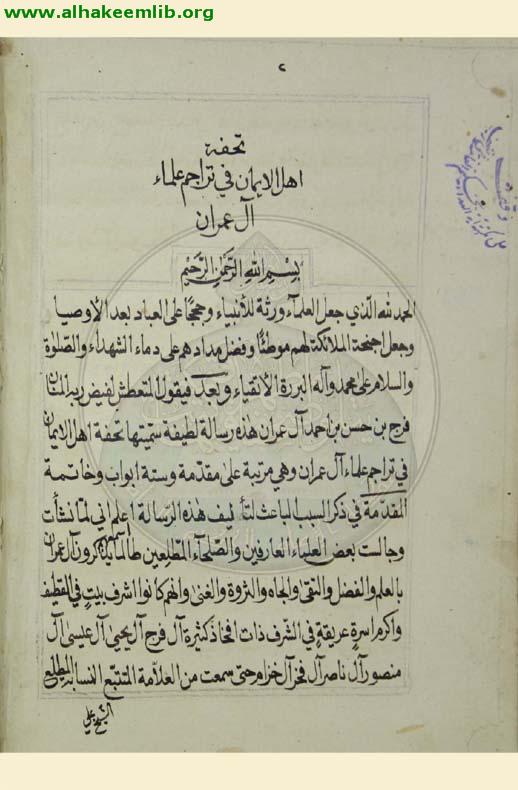 www.alhakeemlib.org
٢
تحفة
اهل الايمان في تراجم علماء
آل عمران
بسم الله الرحمن الرحيم
الحمد لله الذي جعل العلمآء ورثة للأنبياء وحججًا على العباد بعد الأوصيا
وجعل اجنحة الملائكة لهم موطئًا وفضل مدادهم على دماء الشهداء والصلوة
والسلام على محمد وآله البررة الأتقياء وبعد فيقول المتعطش لفيض ربه المنان
فرج بن حسن بن احمد آل عمران هذه رسالة لطيفة سميتها تحفة اهل الايمان
في تراجم علماء آل عمران وهي مرتبة على مقدمة وستة ابواب وخاتمة
المقدمة في ذكر السبب الباعث لتأليف هذه الرسالة اعلم اني لما نشأت
وجالست بعض العلماء العارفين والصلحآء المطلعين طالما يذكرون آل عمران
بالعلم والفضل والتقى والجاه والثروة والغنى وانهم كانوا اشرف بيت في القطيف
واكرم اسرة عريقة في الشرف ذات افخاذ كثيرة آل فرج آل يحيى آل عيسى آل
منصور آل ناصر آل فخر آل خزام وحتى سمعت من العلامة المتتبع النسابة المطلع
الشيخ علي